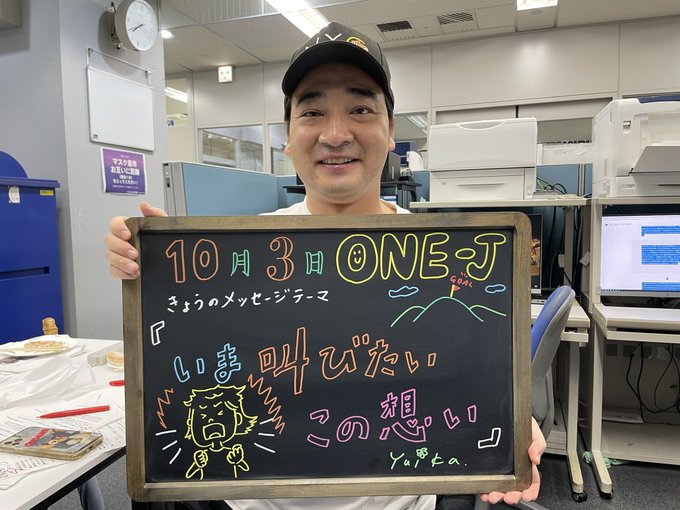 10月3日 ONE-J
GOAL
きょうのメッセージテーマ
『いま叫びたい
この想い』
Yuika.
マスク着用
お互いに距離